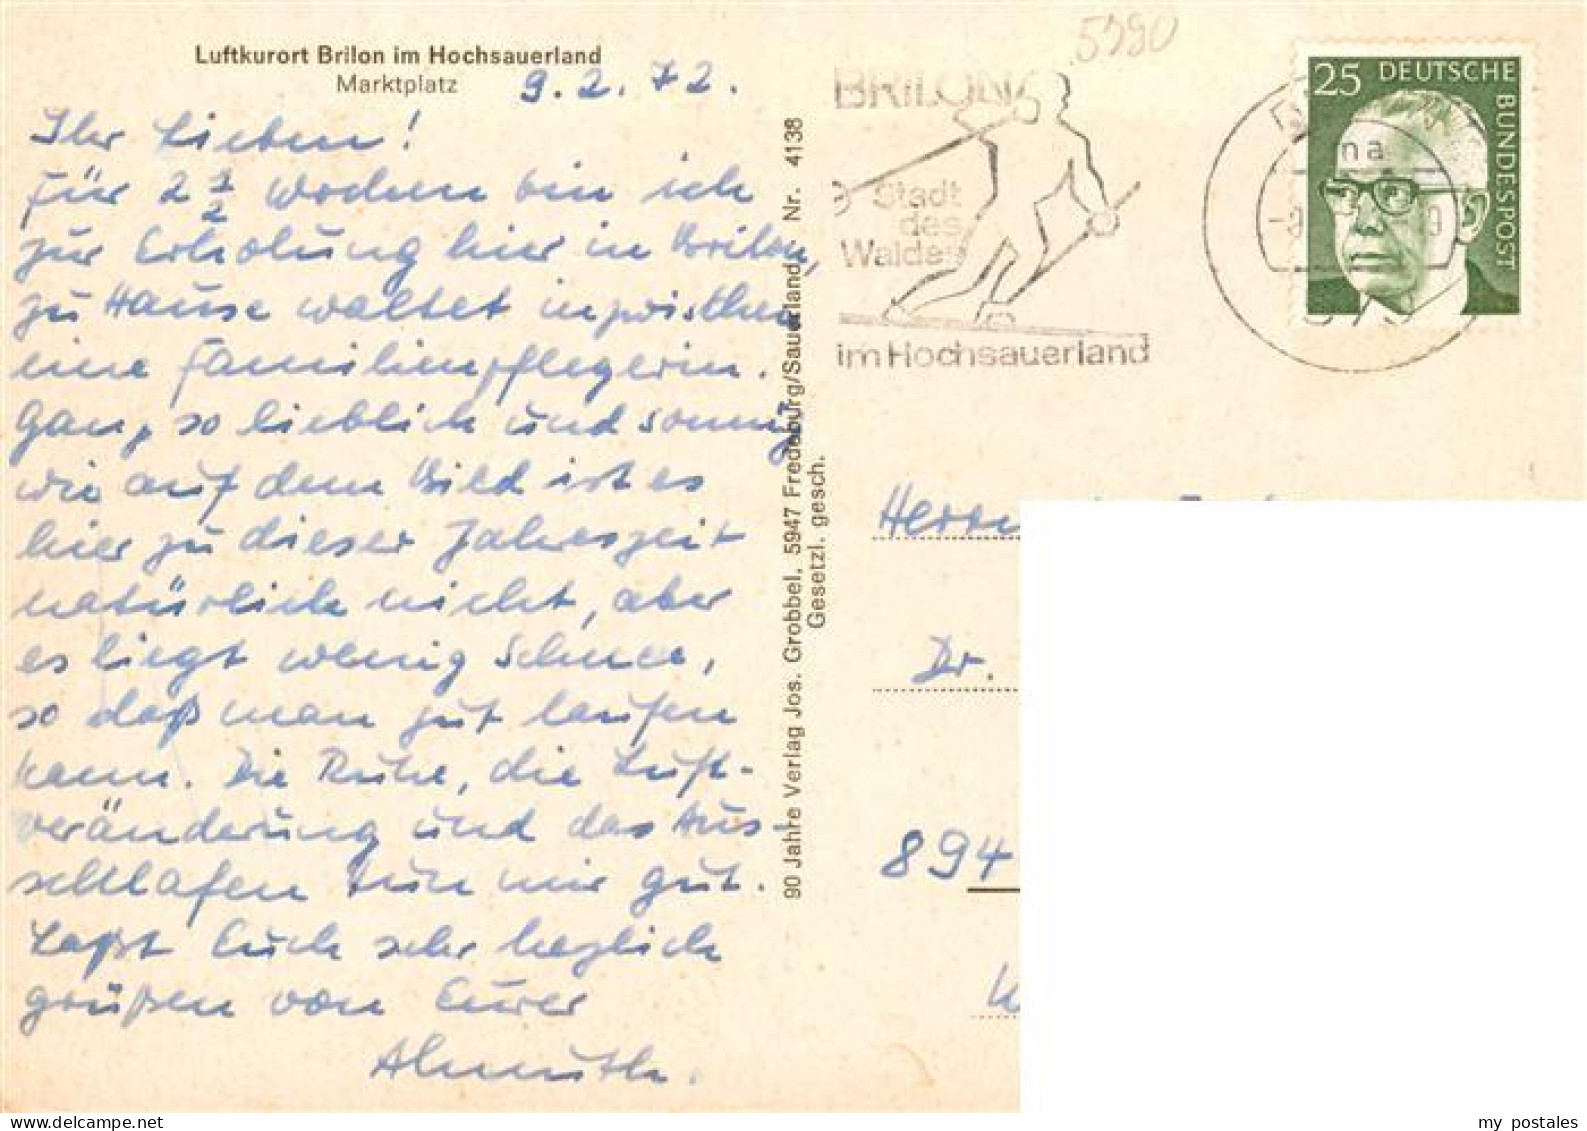 Luftkurort Brilon im Hochsauerland
Marktplatz
9.2.72.
Ihr Lieben!
für 2 1/2 Wochen bin ich
zur Erholung hier in Brilon,
zu Hause waltet inzwischen
eine Familienpflegerin.
Ganz so lieblich und sonnig
wie auf dem Bild ist es
hier zu dieser Jahreszeit
natürlich nicht, aber
es liegt wenig Schnee,
so daß man gut laufen
kann. Die Ruhe, die Luft-
veränderung und das Aus-
schlafen tun mir gut.
Laßt Euch sehr herzlich
grüßen von Eurer
Almuth.
90 Jahre Verlag Jos. Grobbel, 5947 Fredeburg/Sauerland Nr. 4138
Gesetzl. gesch.
5790
BRILON
Stadt
des
Waldes
im Hochsauerland
25 DEUTSCHE
BUNDESPOST
Herrn
Dr.
894
my postales